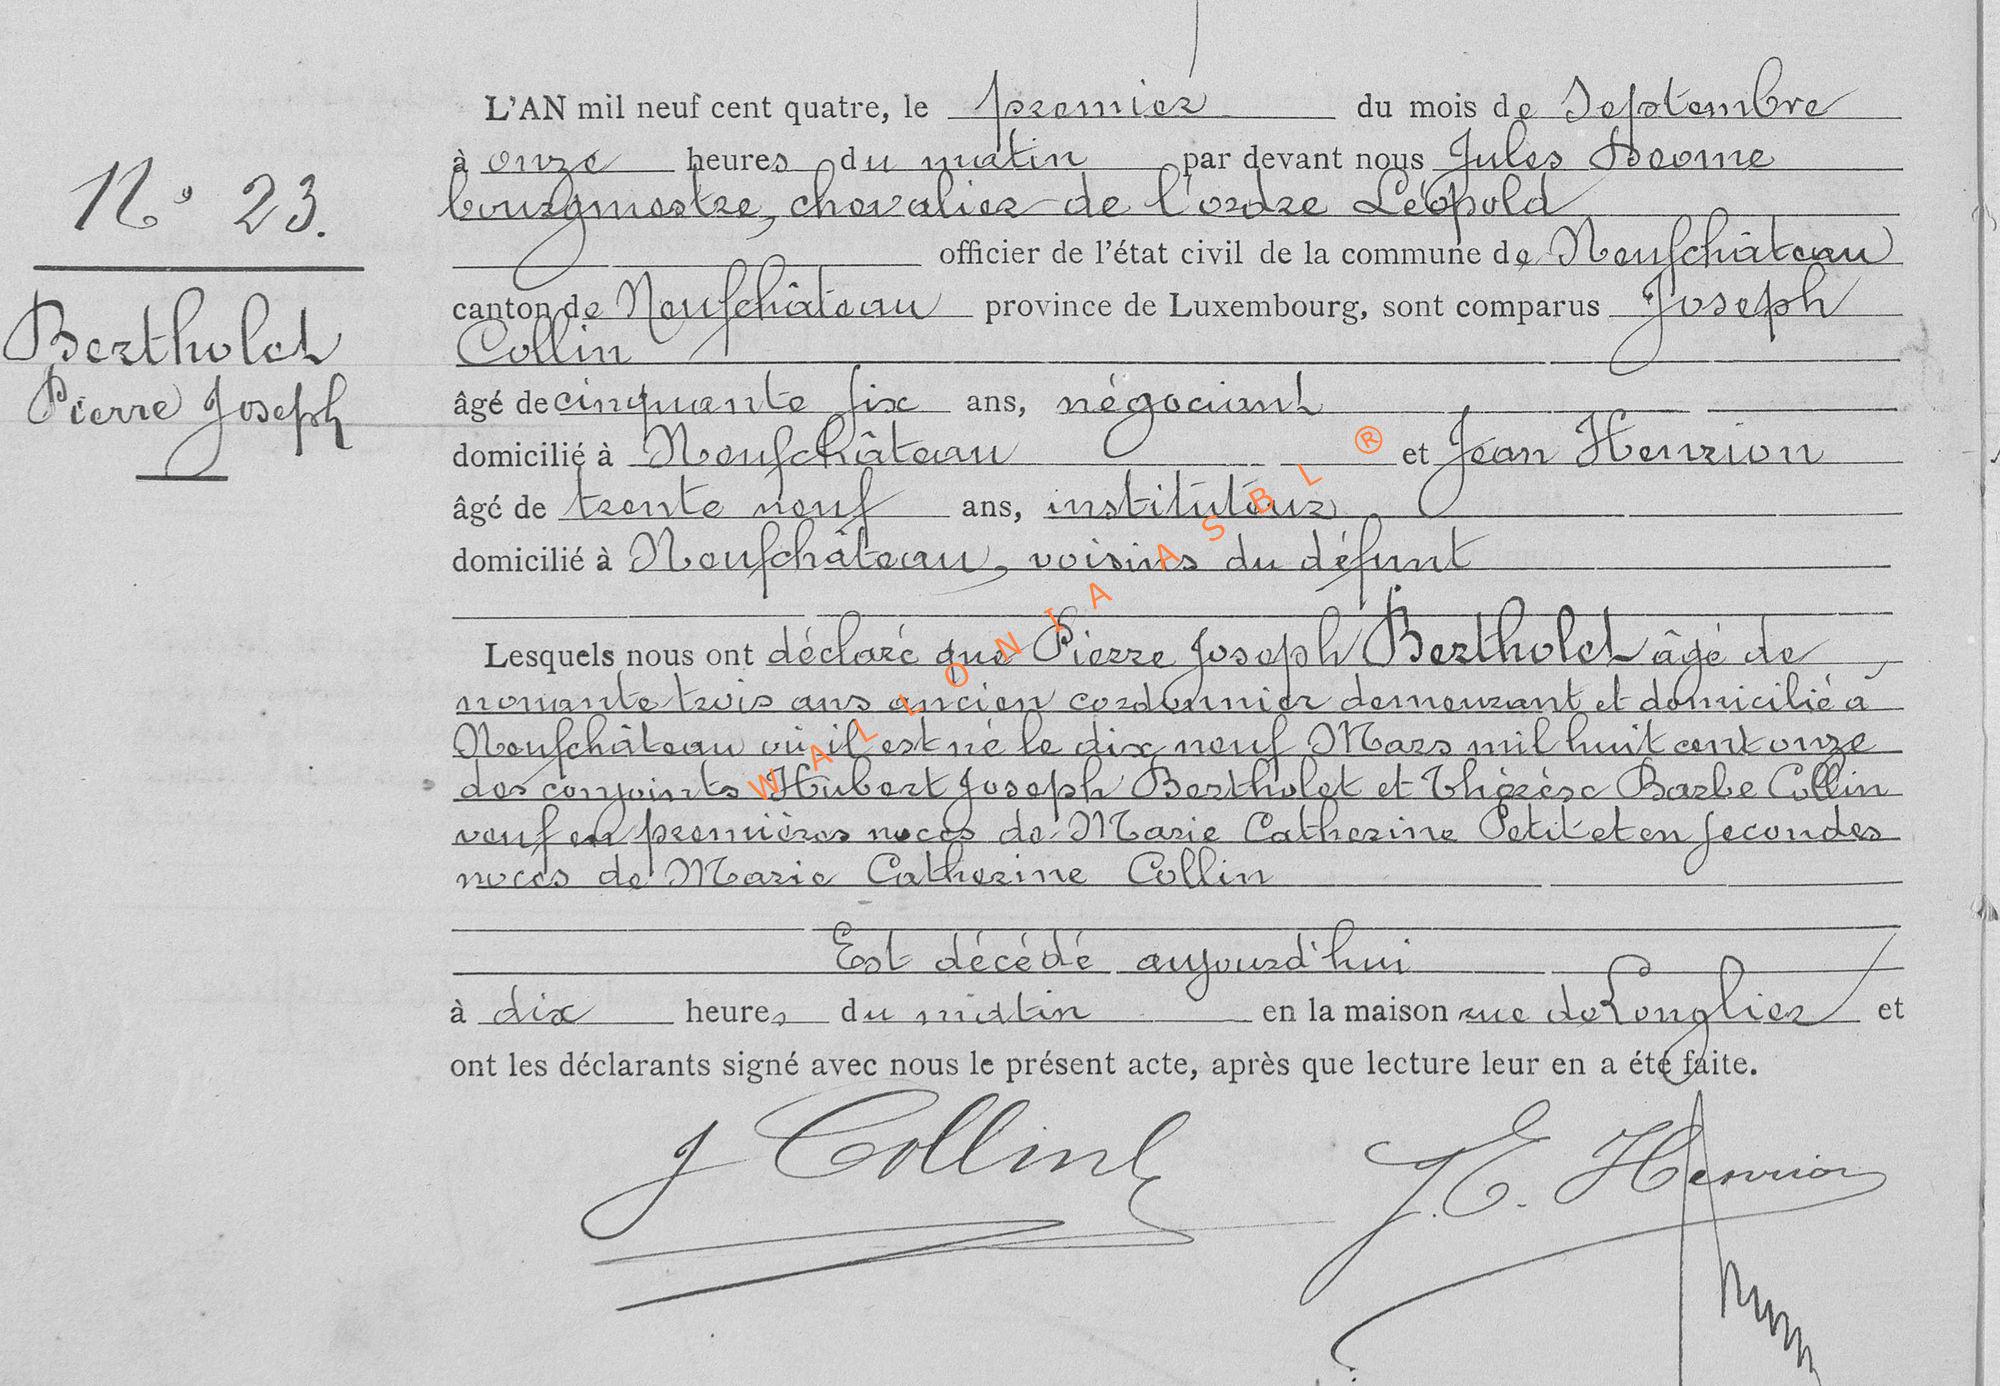 L'AN mil neuf cent quatre, le premier du mois de Septembre
à onze heures du matin par devant nous Jules
bourgmestre, chevalier de l'ordre Léopold
officier de l'état civil de la commune de Neufchâteau
canton de Neufchâteau province de Luxembourg, sont comparus Joseph
Collin
âgé de cinquante six ans, négociant
domicilié à Neufchâteau et Jean Henrion
âgé de trente neuf ans, instituteur
domicilié à Neufchâteau, voisins du défunt
Lesquels nous ont déclaré que Pierre Joseph Bertholet âgé de
nonante trois ans ancien cordonnier demeurant et domicilié à
Neufchâteau où il est né le dix neuf Mars mil huit cent onze
des conjoints Hubert Joseph Bertholet et Thérèse Barbe Collin
veuf en premières noces de Marie Catherine Petit et en secondes
noces de Marie Catherine Collin
Est décédé aujourd'hui
à dix heures du matin en la maison rue de Longlier et
ont les déclarants signé avec nous le présent acte, après que lecture leur en a été faite.
J Collin
J. E. Henrion
N° 23.
Bertholet
Pierre Joseph
WALLONIA ASBL ®